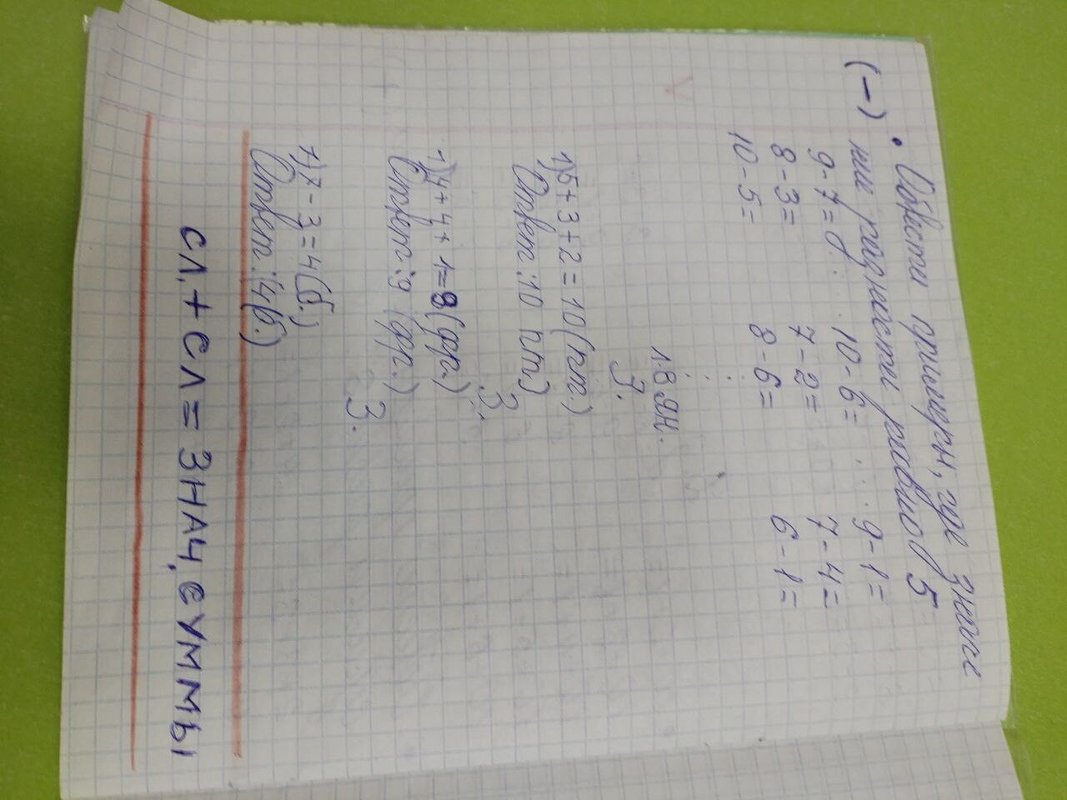 (–) • Обвести примеры, где значе
ния разности равно 5
9-7= 10-6= 9-1=
8-3= 7-2= 7-4=
10-5= 8-6= 6-1=
18 ян.
З.
1)5+3+2=10(пт.)
Ответ: 10 пт)
З.
1)4+4+1=9(фр.)
Ответ: 9 фр.)
З.
1)7-3=4(б.)
Ответ: 4(б.)
СЛ.+СЛ=ЗНАЧ.СУММЫ